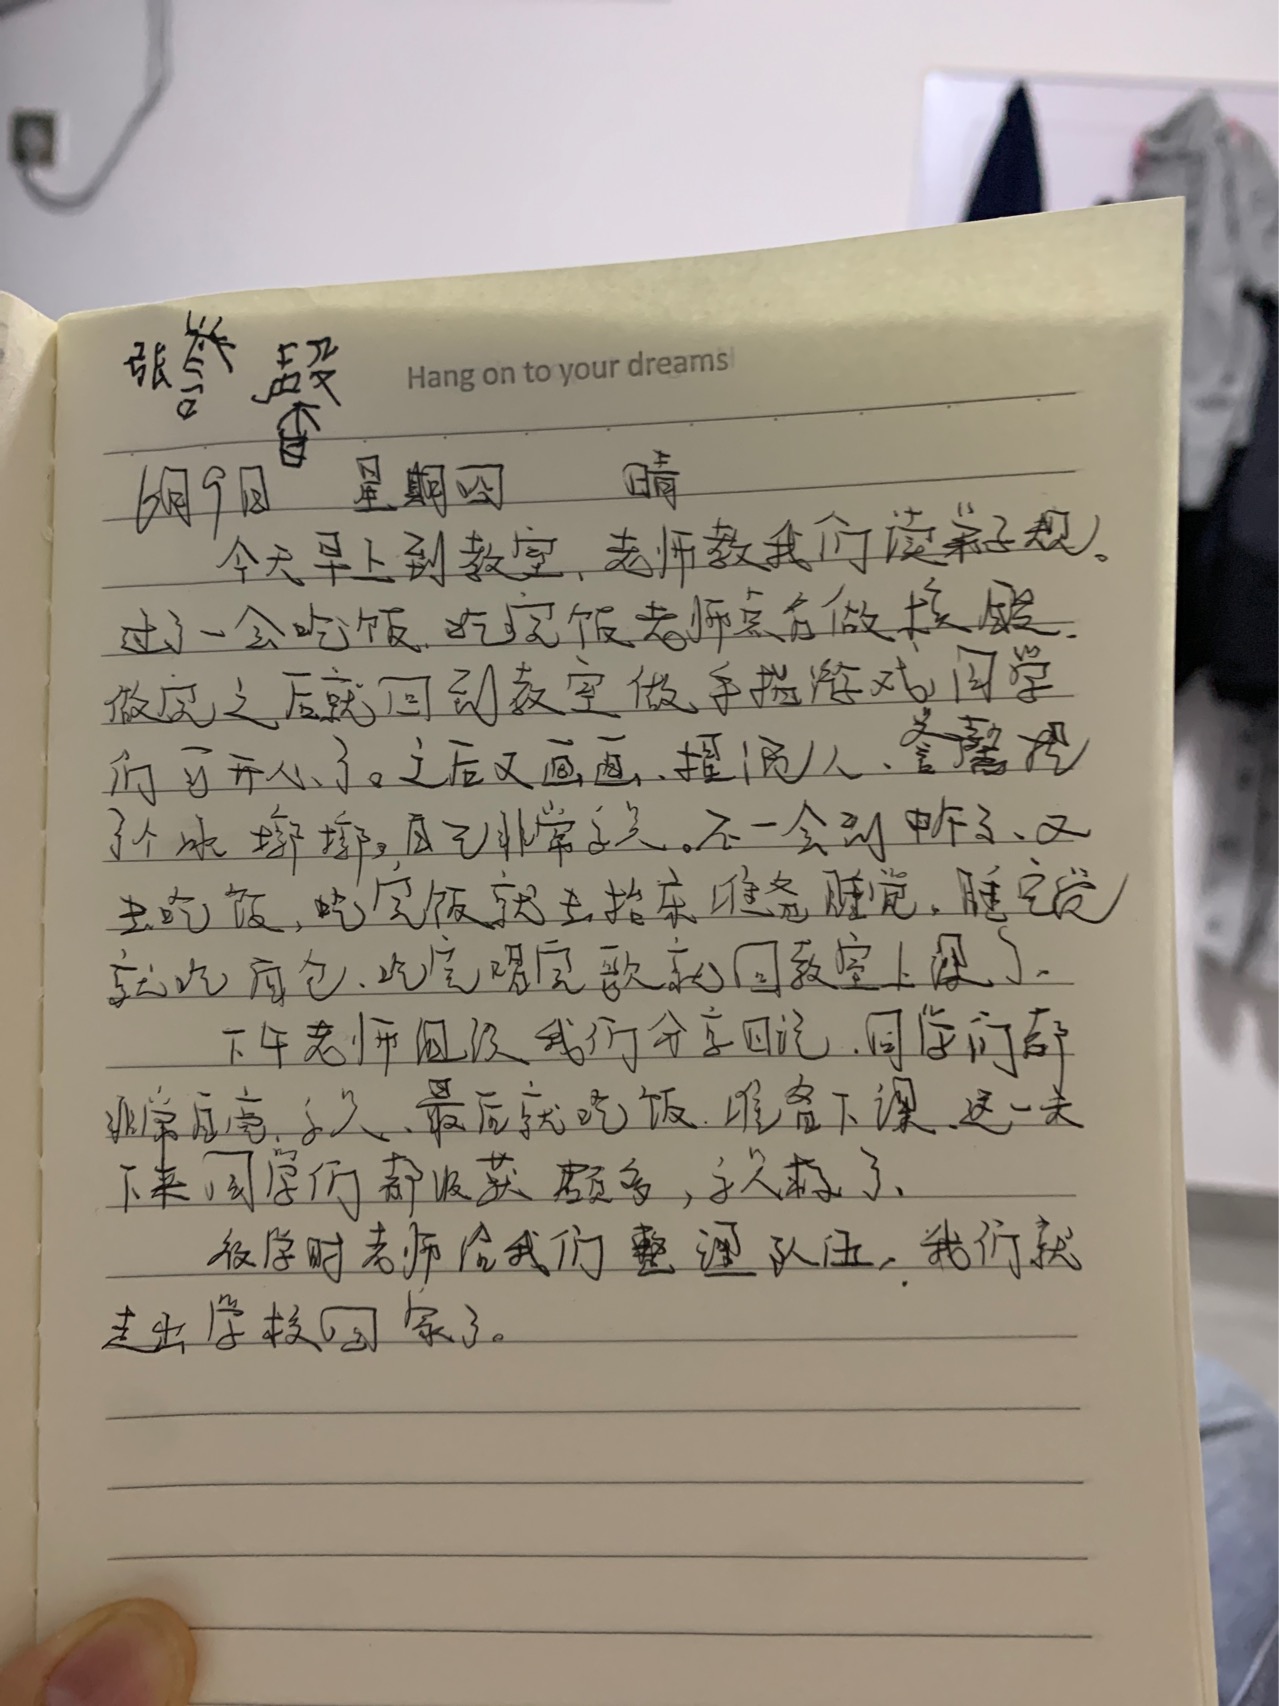 张誉馨 Hang on to your dreams
6月9日 星期四 晴
今天早上到教室、老师教我们读弟子规。
过了一会吃饭、吃完饭老师点名做核酸、
做完之后就回到教室做手指游戏、同学
们可开心了。之后又画画、捏泥人、誉馨捏
了个水
去吃饭，吃完饭就去抬床准备睡觉、睡完觉
就吃面包、吃完唱完歌就回教室上课了、
下午老师组织我们分享日记、同学们都
非常、最后就吃饭、准备下课、这一天
下来同学们都收获颇多，了、
放学时老师给我们整理队伍、我们就
走出学校回家了。